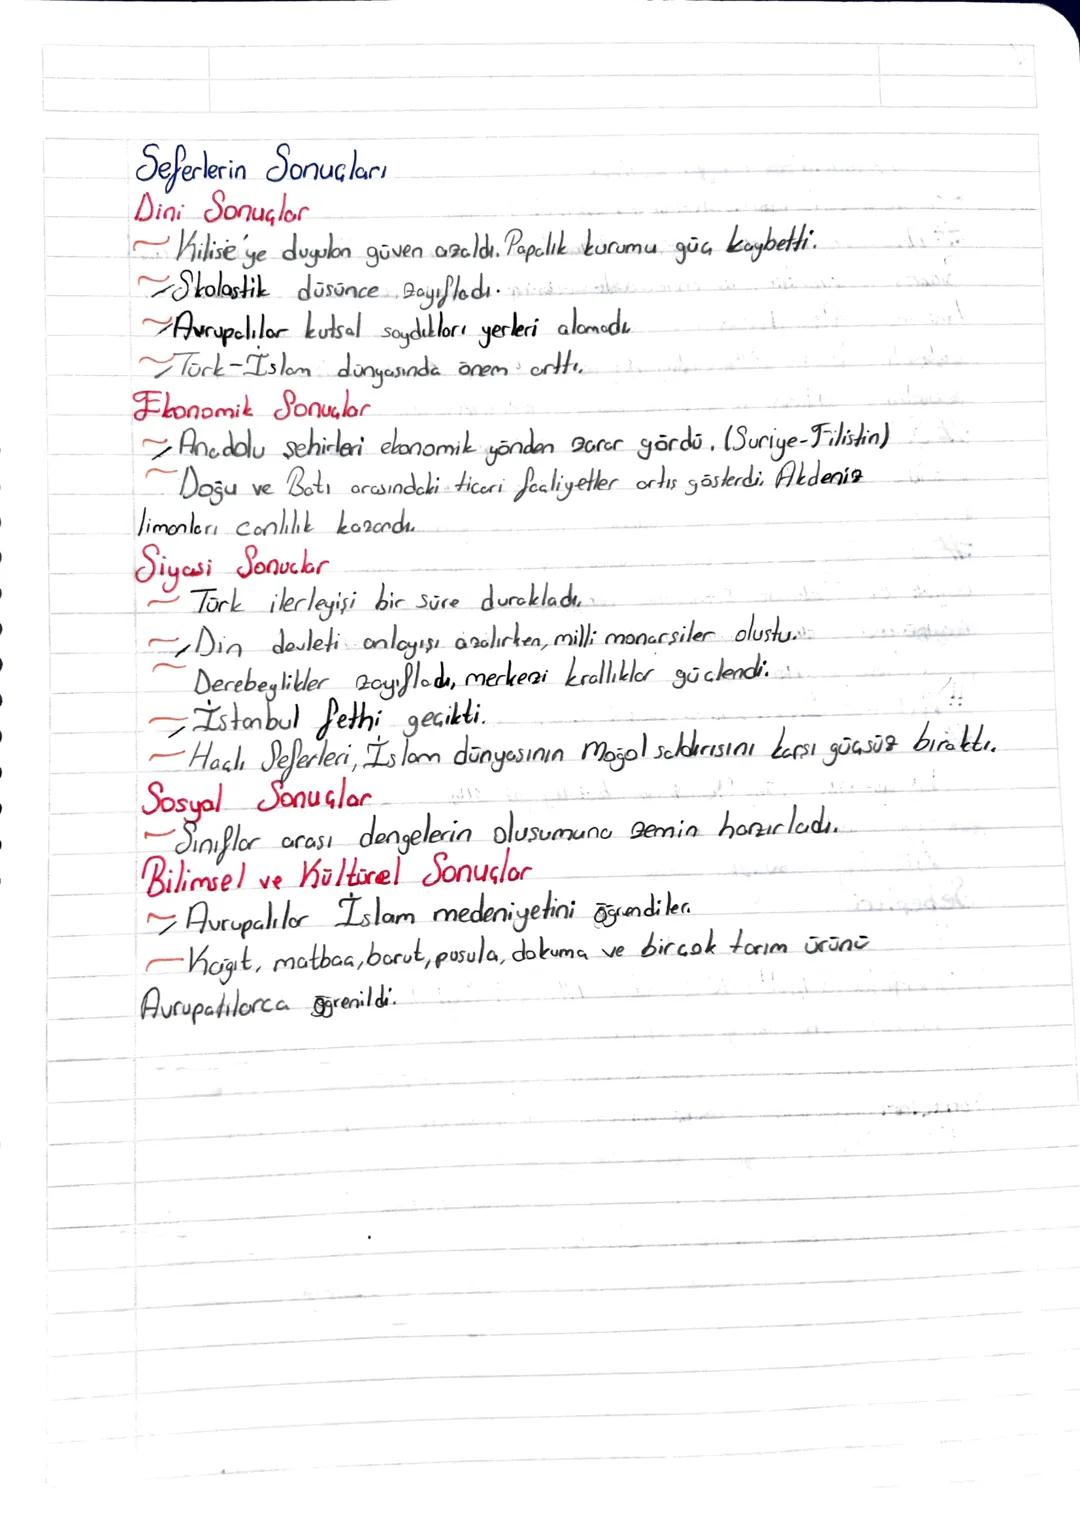 Seferlerin Sonuçları
Dini Sonuçlar
~ Kilise'ye duyulan güven azaldı. Papalık kurumu güç kaybetti.
~ Skolastik düsünce zayıfladı.
~ Avrupalılar kutsal saydıkları yerleri alamadı
~ Türk-İslam dünyasında önem arttı.
Ekonomik Sonuçlar
~ Anadolu şehirleri ekonomik yönden zarar gördü. (Suriye-Filistin)
~ Doğu ve Batı arasındaki ticari faaliyetler artıs gösterdi. Akdeniz
limanları canlılık kazandı.
Siyasi Sonuclar
~ Türk ilerleyişi bir süre durakladı.
~ Din devleti anlayışı azalırken, milli monarsiler olustu.
~ Derebeylikler zayıfladı, merkezi krallıklar güclendi.
~ İstanbul fethi geçikti.
~ Haçlı Seferleri, İslam dünyasının Moğol saldırısını karşı güçsüz bıraktı.
Sosyal Sonuçlar
~ Sınıflar arası dengelerin oluşumuna zemin hazırladı.
Bilimsel ve Kültürel Sonuçlar
~ Avrupalılar İslam medeniyetini öğrendiler.
~ Kağıt, matbaa, barut, pusula, dokuma ve birçok tarım ürünü
Avrupalılarca öğrenildi.